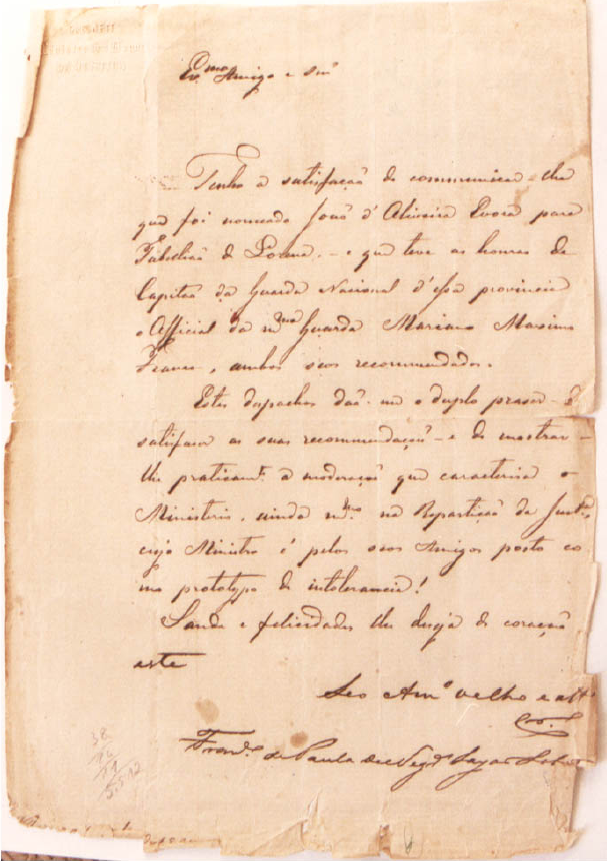 Ex.mo Amigo e Snr
Tenho a satisfação de communicar-lhe
que foi nomeado João d'Oliveira Evora para
Tabellião de Lorena - e que teve as honras de
Capitão da Guarda Nacional d'essa provincia
o Official da m.ma Guarda Mariano Maximo
Franco, ambos seos recommendados.
Estes despachos dão-me o duplo praser - de
satisfaser as suas recommendações - e de mostrar-
lhe praticam.te a moderação que caracterisa o
Ministerio, ainda m.mo na Repartição da Justiça
cujo Ministro é pelos seos Amigos posto co
mo prototypo de intolerancia!
Saude e felicidades lhe deseja de coração
este
Seo Am.o velho e
Fran.co de Paula de Negr.os Sayão Lobato
38
12